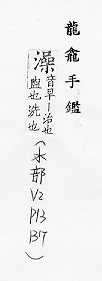 龍龕手鑑
澡
音早—治也
盥也洗也
(水部 V2 P13 B7)